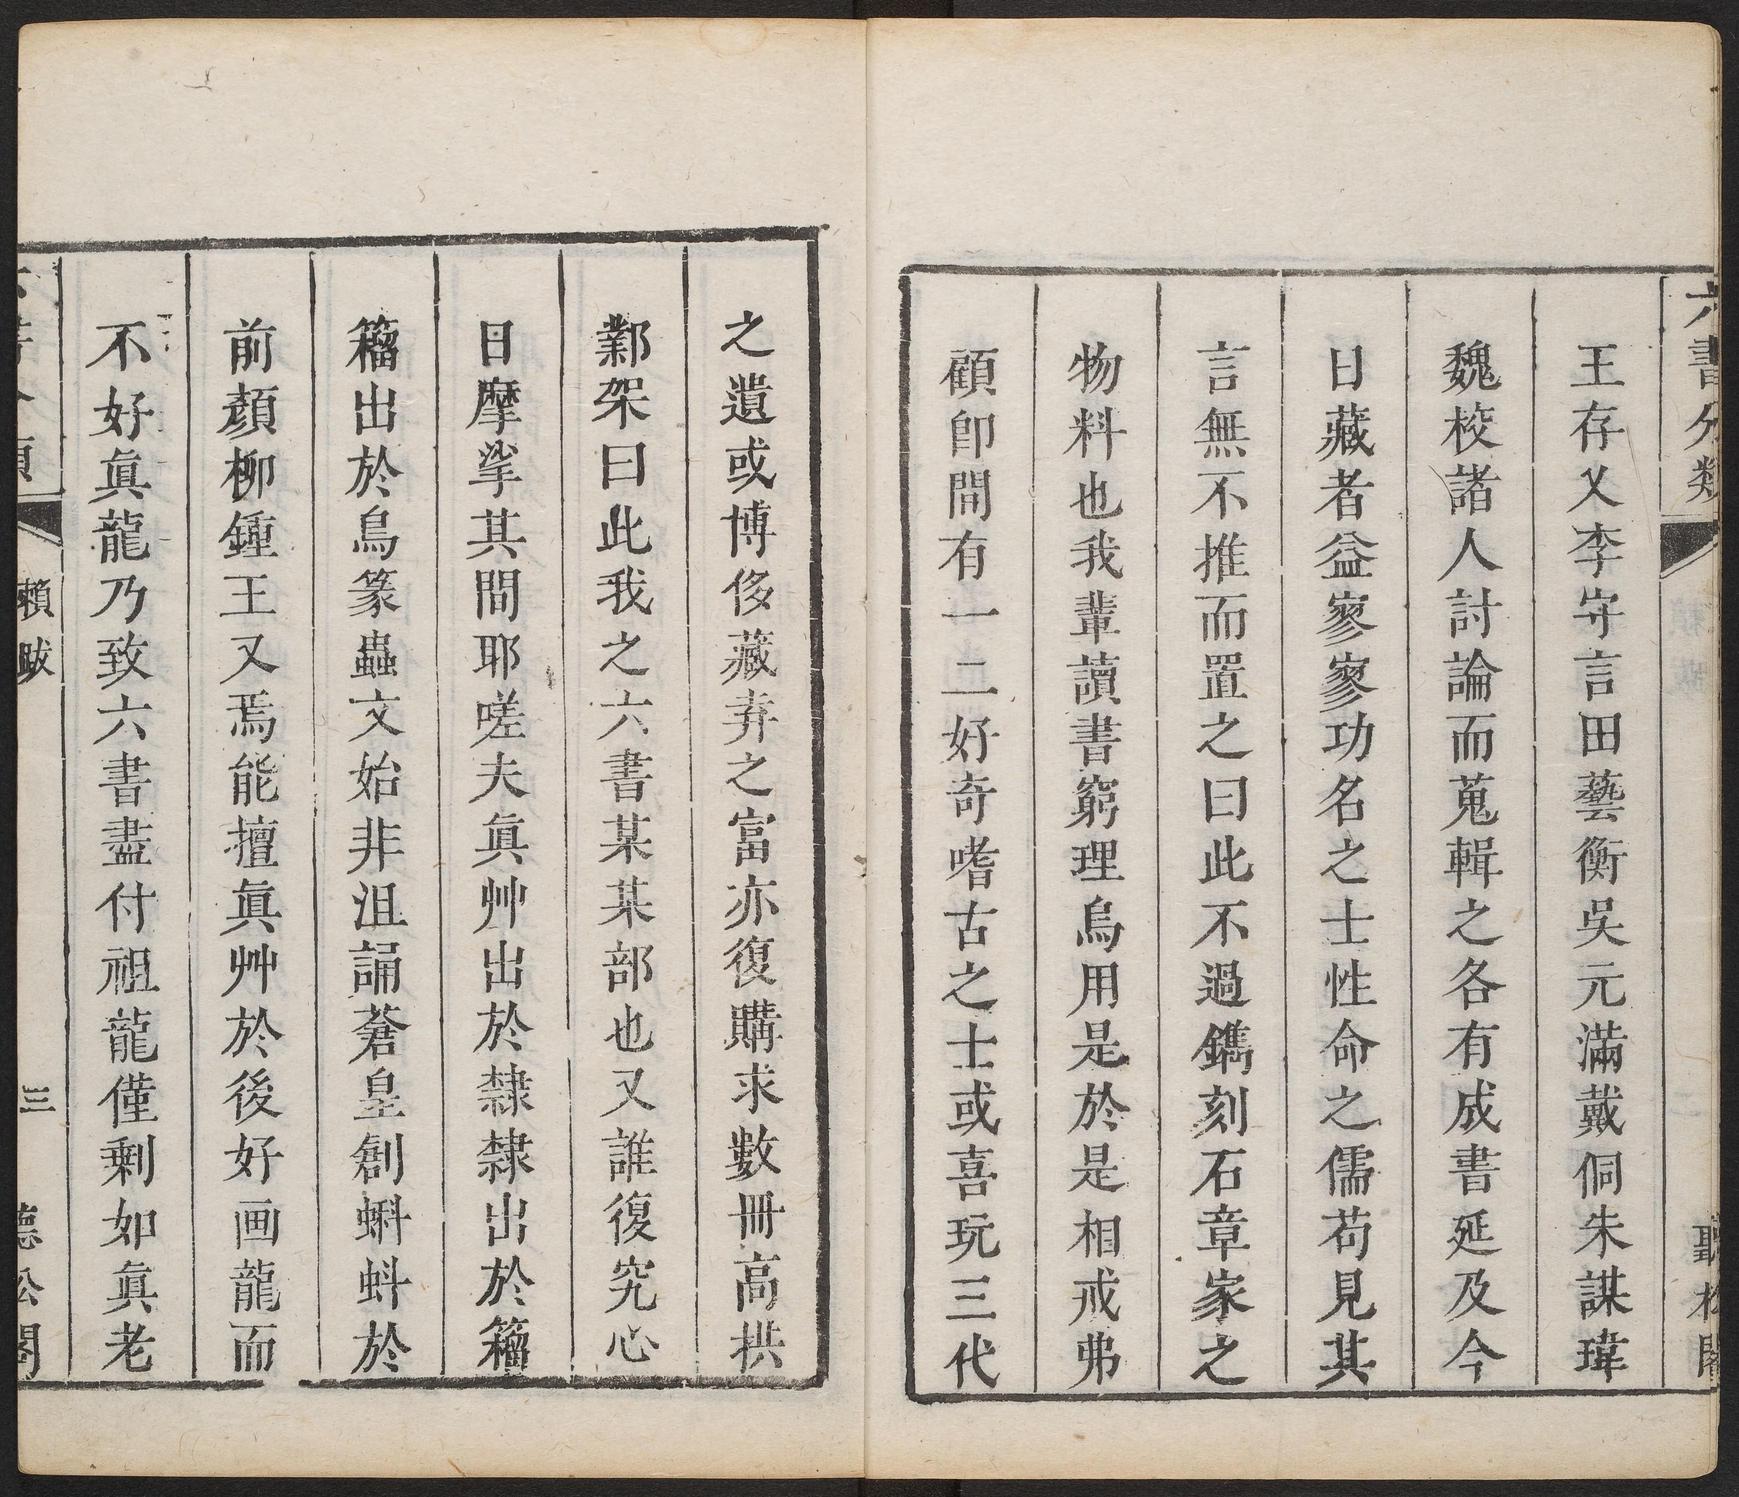 六書分類
聽松閣
王存乂李守言田藝衡吳元滿戴侗朱謀㙔
魏校諸人討論而蒐輯之各有成書延及今
日藏者益寥寥功名之士性命之儒苟見其
言無不推而置之曰此不過鐫刻石章家之
物料也我輩讀書窮理烏用是於是相戒弗
顧卽間有一二好奇嗜古之士或喜玩三代
之遺或博侈藏弆之富亦復購求數冊高拱
鄴架曰此我之六書某某部也又誰復究心
日摩挲其間耶嗟夫眞艸出於隸隸出於籀
籀出於鳥篆蟲文始非沮誦蒼皇創蝌蚪於
前顏柳鍾王又焉能擅眞艸於後好画龍而
不好眞龍乃致六書盡付祖龍僅剩如眞老
六書分類
賴跋
三
聽松閣